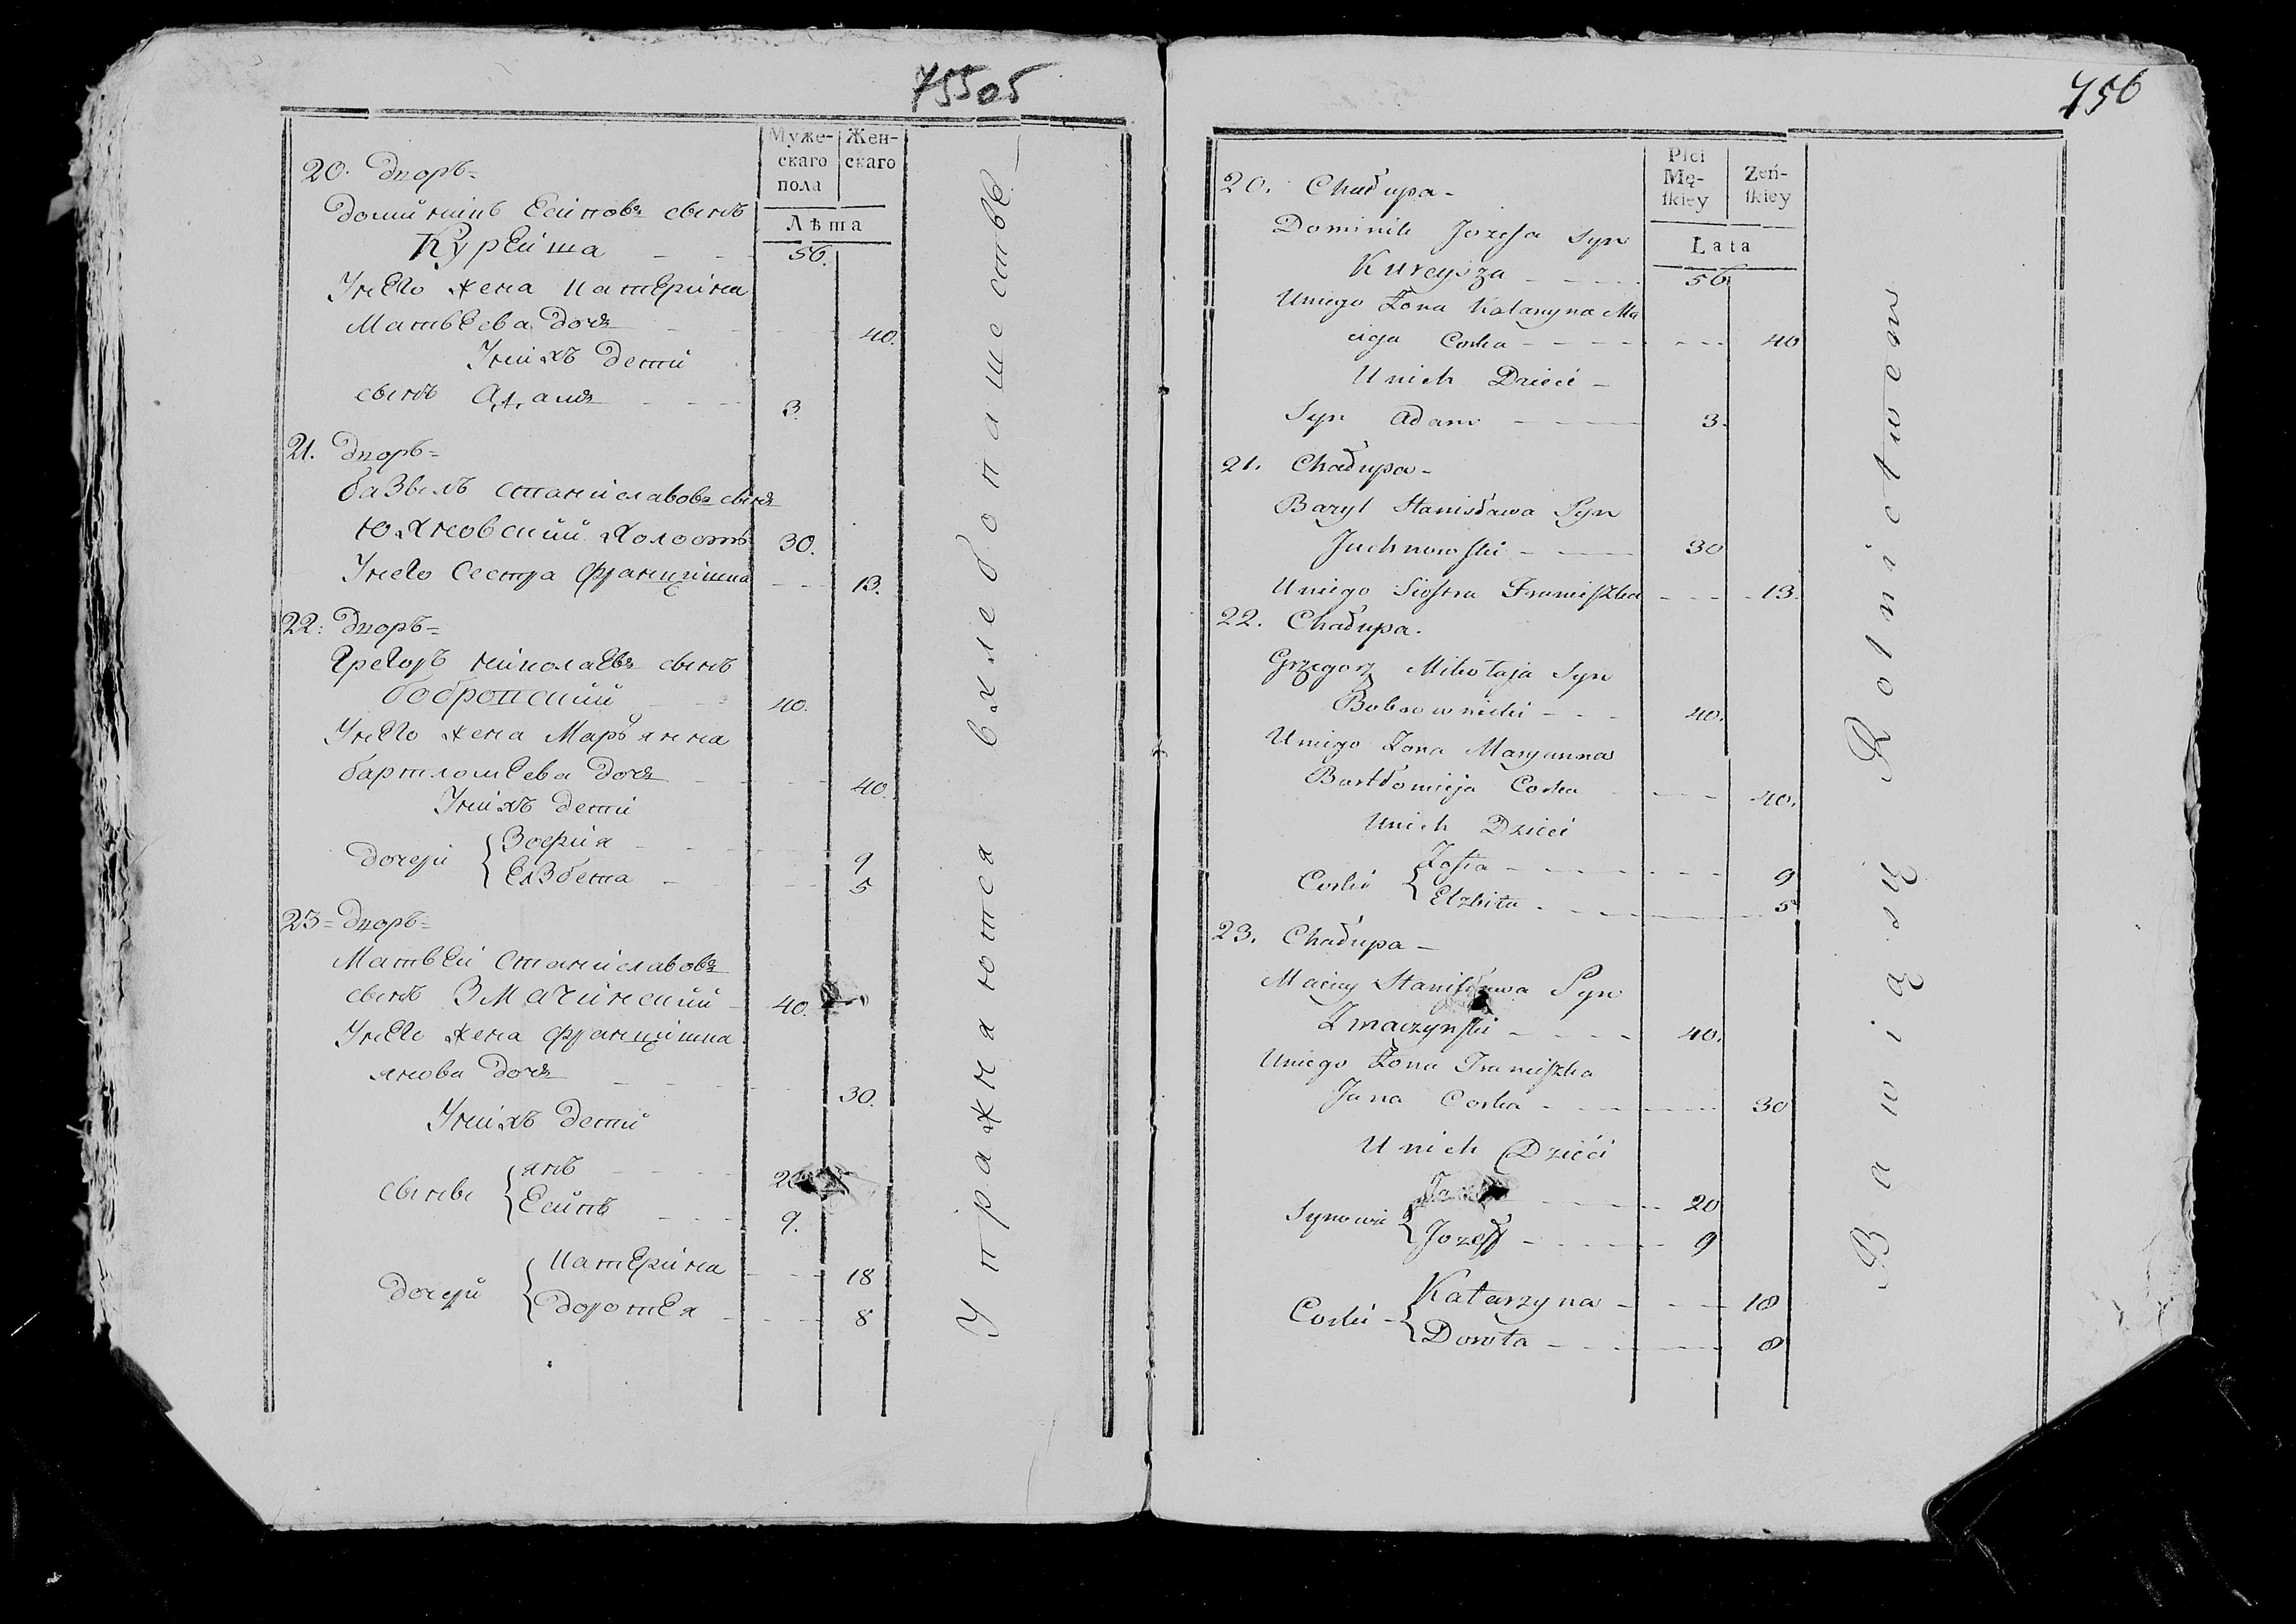 755об
Муже-
скаго
пола
Жен-
скаго
Лѣта
20. Дворъ=
Доминикъ Есиповъ сынъ
Курейша - - 56.
Унего жена Катерина
Матвеева Дочь - - - 40.
Унихъ Дети
сынъ Адамъ - - - 3.
21. Дворъ=
базылъ Станиславовъ сынъ
Юхновский Холостъ 30.
Унего Сестра Францишка - - 13.
22: Дворъ=
Грегоръ Николаевъ сынъ
бобровский - - 40.
Унего жена Марьянна
бартломеева Дочь - - - 40.
Унихъ Дети
Дочери { Зофия - - - 9
Елзбета - - - 5
23= Дворъ=
Матвей Станиславовъ
сынъ Змачинский - 40.
Унего жена Францишка
янова Дочь - - - 30.
Унихъ Дети
сыневе { янъ - - - 20
Есипъ - - - 9.
Дочери { Катерина - - - 18
Доротея - - - 8
Упражняются вхлебопашестве
756
Płci
Mę-
ſkiey
Zeń-
ſkiey
Lata
20. Chałupa -
Dominik Jozefa Syn
Kureysza - - - 56
Uniego Żona Katarzyna Ma
cieja Corka - - - - 40
Unich Dzieci -
Syn Adam - - - 3.
21. Chałupa -
Bazyl Stanisława Syn
Juchnowſki - - - 30
Uniego Sioſtra Franciſzka - - - 13.
22. Chałupa.
Grzegorz Mikołaja Syn
Bobrownicki - - - 40.
Uniego Żona Maryanna
Bartłomieja Corka - - - 40.
Unich Dzieci
Corki { Zoſia - - - - 9
Elzbieta - - - - 5
23. Chałupa -
Maciey Staniſława Syn
Zmaczynſki - - - - 40.
Uniego Żona Franciſzka
Jana Corka - - - - 30
Unich Dzieci
Synowie { Jan - - - - 20
Jozeff - - - - 9
Corki - { Katarzyna - - - 18
Dorota - - - - 8
Bawią się Rolnictwem